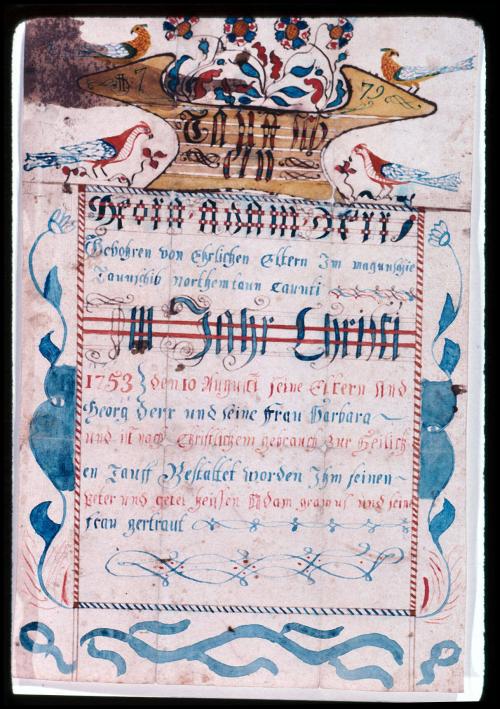 17 79
Tauf sch
ein
Georg Adam Derr
Gebohren von Ehrlichen Eltern Im magunschie
Taunschib northemtaun Caunti
Im Jahr Christi
1753 den 10 Augusti seine Eltern sind
Georg Derr und seine Frau Barbara
und ist nach Christlichem gebrauch zur Heilich
en Tauff Bestattet worden Ihm seinen
veter und getel heissen Adam und seine
frau gertraut